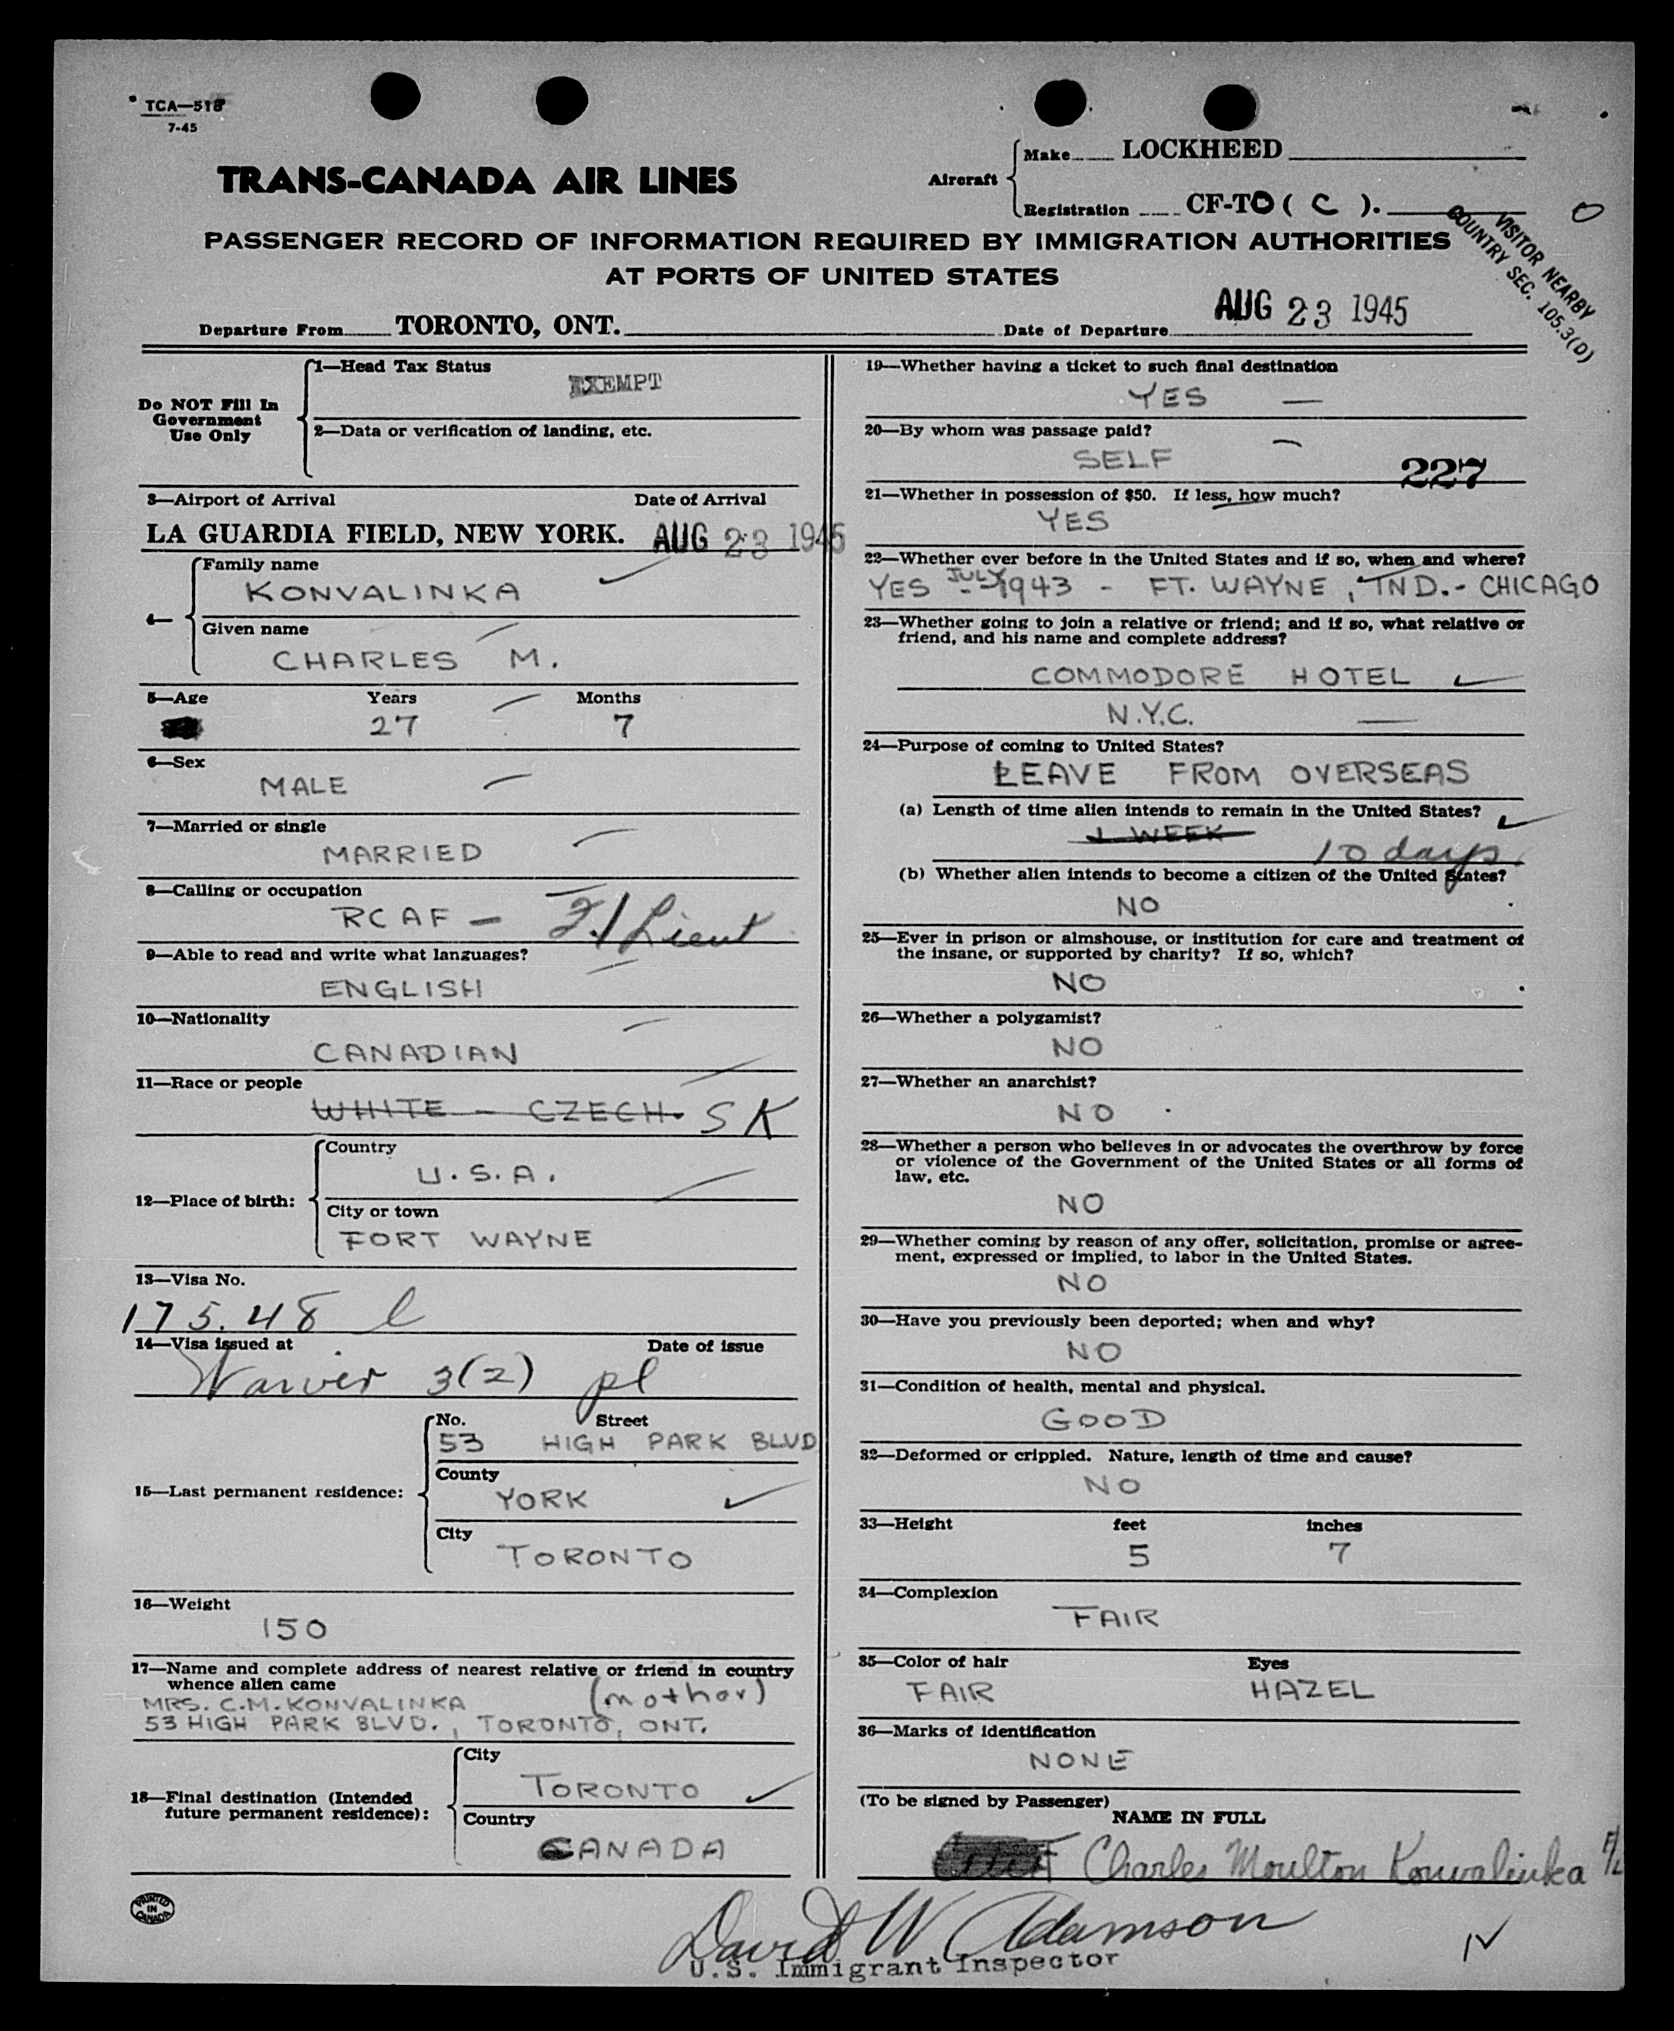 TCA—518
7-45
TRANS-CANADA AIR LINES
Aircraft
Make LOCKHEED
Registration CF-TO ( C ).
PASSENGER RECORD OF INFORMATION REQUIRED BY IMMIGRATION AUTHORITIES
AT PORTS OF UNITED STATES
VISITOR NEARBY
COUNTRY SEC. 105.3(D)
Departure From TORONTO, ONT. Date of Departure AUG 23 1945
Do NOT Fill In
Government
Use Only
1—Head Tax Status
EXEMPT
2—Data or verification of landing, etc.
3—Airport of Arrival Date of Arrival
LA GUARDIA FIELD, NEW YORK. AUG 23 1945
4—
Family name
KONVALINKA
Given name
CHARLES M.
5—Age Years Months
27 7
6—Sex
MALE
7—Married or single
MARRIED
8—Calling or occupation
RCAF — F/Lieut
9—Able to read and write what languages?
ENGLISH
10—Nationality
CANADIAN
11—Race or people
WHITE - CZECH. SK
12—Place of birth:
Country
U.S.A.
City or town
FORT WAYNE
13—Visa No.
175.48 l
14—Visa issued at Date of issue
Waiver 3(2) pl
15—Last permanent residence:
No. Street
53 HIGH PARK BLVD
County
YORK
City
TORONTO
16—Weight
150
17—Name and complete address of nearest relative or friend in country
whence alien came
MRS. C.M. KONVALINKA (mother)
53 HIGH PARK BLVD., TORONTO, ONT.
18—Final destination (Intended
future permanent residence):
City
TORONTO
Country
CANADA
19—Whether having a ticket to such final destination
YES —
20—By whom was passage paid?
SELF
227
21—Whether in possession of $50. If less, how much?
YES
22—Whether ever before in the United States and if so, when and where?
YES JULY 1943 - FT. WAYNE, IND. - CHICAGO
23—Whether going to join a relative or friend; and if so, what relative or
friend, and his name and complete address?
COMMODORE HOTEL
N.Y.C.
24—Purpose of coming to United States?
LEAVE FROM OVERSEAS
(a) Length of time alien intends to remain in the United States?
1 WEEK 10 days.
(b) Whether alien intends to become a citizen of the United States?
NO
25—Ever in prison or almshouse, or institution for care and treatment of
the insane, or supported by charity? If so, which?
NO
26—Whether a polygamist?
NO
27—Whether an anarchist?
NO
28—Whether a person who believes in or advocates the overthrow by force
or violence of the Government of the United States or all forms of
law, etc.
NO
29—Whether coming by reason of any offer, solicitation, promise or agree-
ment, expressed or implied, to labor in the United States.
NO
30—Have you previously been deported; when and why?
NO
31—Condition of health, mental and physical.
GOOD
32—Deformed or crippled. Nature, length of time and cause?
NO
33—Height feet inches
5 7
34—Complexion
FAIR
35—Color of hair Eyes
FAIR HAZEL
36—Marks of identification
NONE
(To be signed by Passenger)
NAME IN FULL
Charles Moulton Konvalinka F/L
PRINTED
IN
CANADA
David W Adamson
U.S. Immigrant Inspector